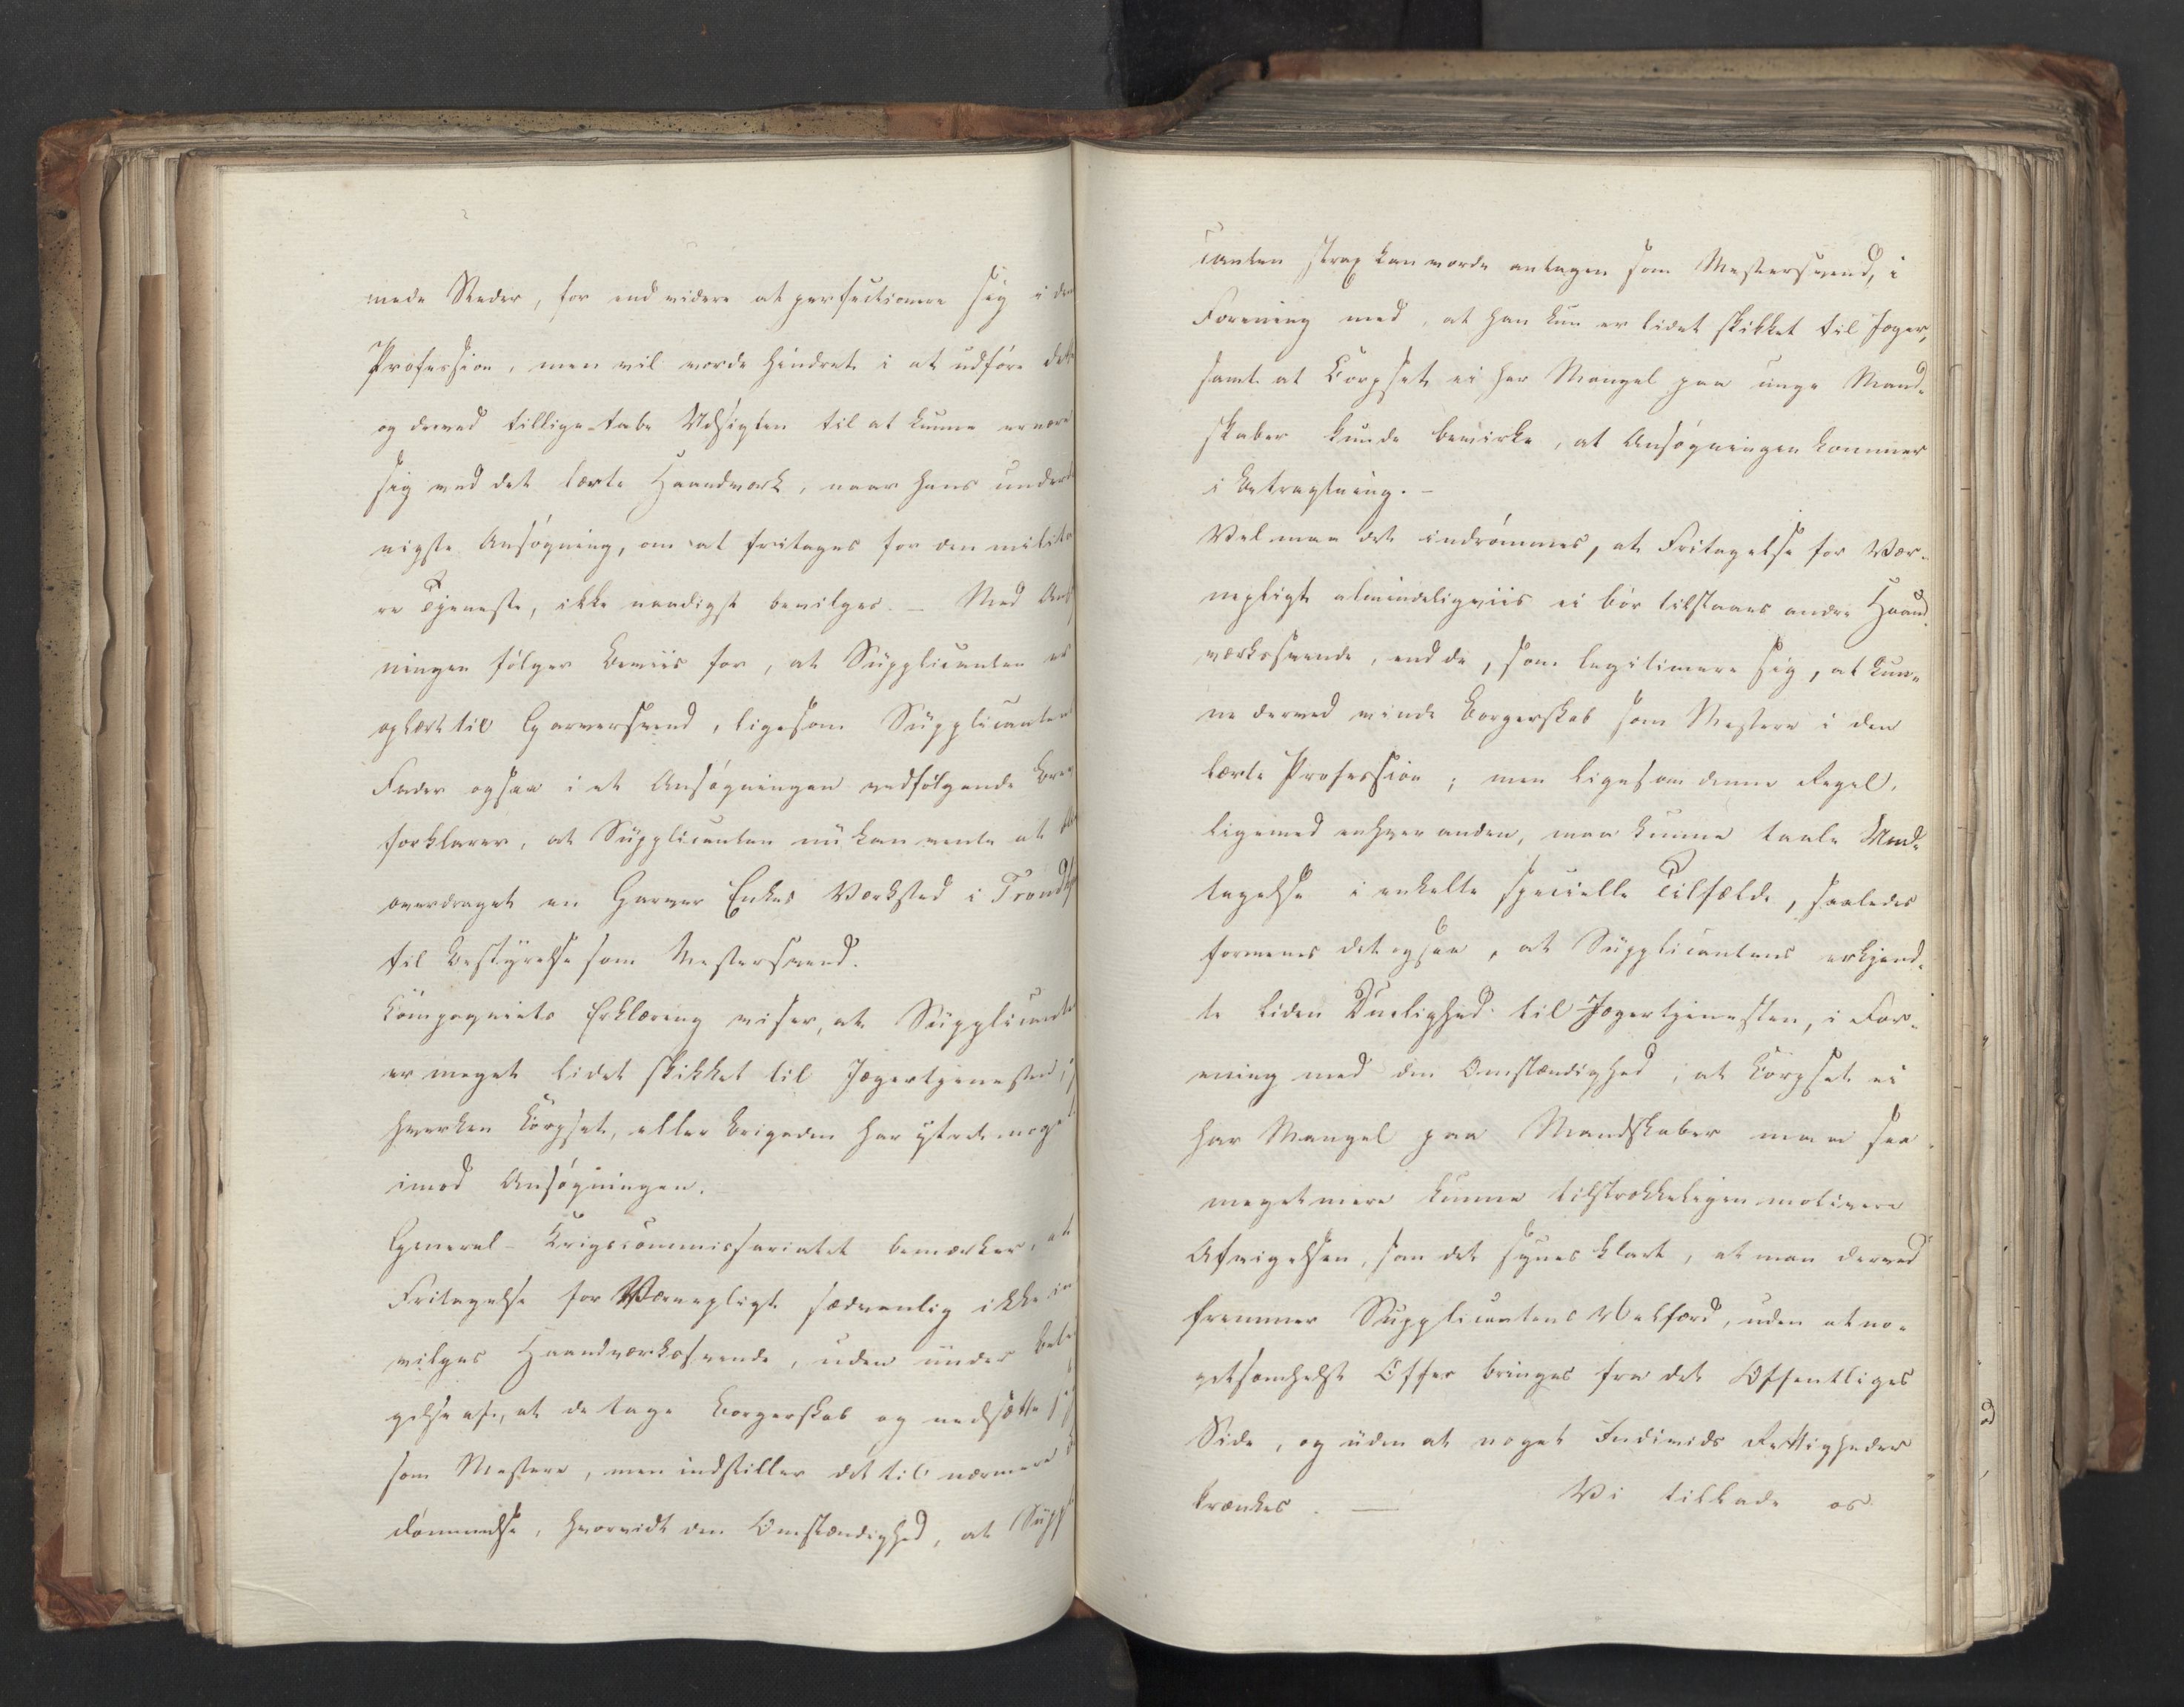 mede Steder, for end videre at perfectionere sig i den
Profession, men vil vorde hindret i at udføre det
og derved tillige tabe Udsigten til at kunne ernære
sig ved det lærte Haandverk, naar hans underda
nigste Ansøgning, om at fritages for den militæ
re Tjeneste, ikke naadigst bevilges. — Med Ansø
ningen følger Beviis for, at Supplicanten er
oplært til Garversvend, ligesom Supplicantens
Fader ogsaa i et Ansøgningen vedfølgende Brev
forklarer, at Supplicanten nu kan vente at
overdraget en Garver Enkes Værksted i Trondh
til Bestyrelse som Mestersvend.
Compagniets Erklæring viser, at Supplicanten
er meget lidet skikket til Jægertjenesten,
hverken Corpset, eller Brigaden har ytret noget
imod Ansøgningen.
General-Krigscommissariatet bemærker, at
Fritagelse for Værnepligt sædvanlig ikke
vilges Haandværkssvende, uden under Betin
gelse af, at de tage Borgerskab og nedsætte sig
som Mestere, men indstiller det til nærmere
dømmelse, hvorvidt den Omstændighed, at Suppl
canten strax kan vorde antagen som Mestersvend, i
Forening med, at han kun er lidet skikket til Jæger,
samt at Corpset ei har Mangel paa unge Mand-
skaber kunde bevirke, at Ansøgningen kommer
i Betragtning. —
Vel maa det indrømmes, at Fritagelse for Vær-
nepligt almindeligviis ei bør tilstaaes andre Haand-
værkssvende, end de, som legitimere sig, at kun-
ne derved vinde Borgerskab som Mestere i den
lærte Profession; men ligesom denne Regel,
ligemed enhver anden, maa kunne taale Und-
tagelse i enkelte specielle Tilfælde, saaledes
formenes det ogsaa, at Supplicantens erkjend-
te liden Duelighed til Jægertjenesten, i For-
ening med den Omstændighed, at Corpset ei
har Mangel paa Mandskaber maa saa
meget mere kunne tilstrækkeligen motivere
Afvigelsen, som det synes klart, at man derved
fremmer Supplicantens Velfærd, uden at no-
getsomhelst Offer bringes fra det Offentliges
Side, og uden at noget Individs Rettigheder
krænkes. — Vi tillade os